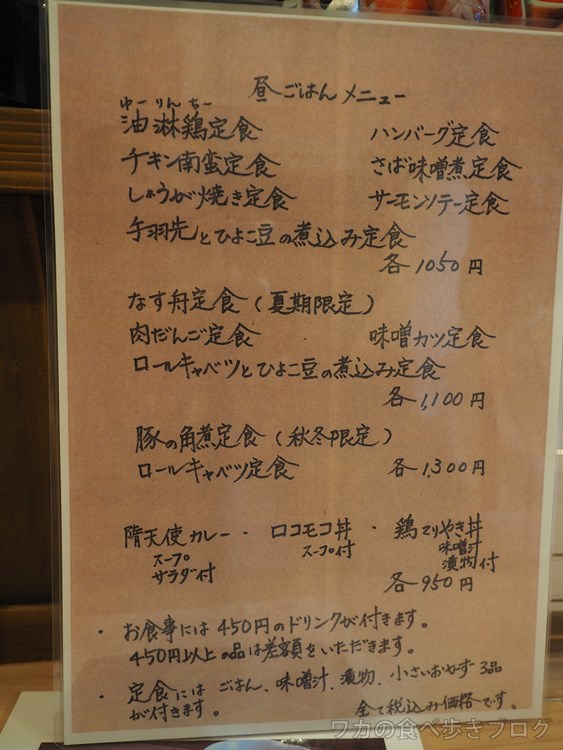 昼ごはんメニュー
ゆーりんちー
油淋鶏定食 ハンバーグ定食
チキン南蛮定食 さば味噌煮定食
しょうが焼き定食 サーモンソテー定食
手羽先とひよこ豆の煮込み定食
各1050円
なす舟定食(夏期限定)
肉だんご定食 味噌カツ定食
ロールキャベツとひよこ豆の煮込み定食
各1,100円
豚の角煮定食(秋冬限定)
ロールキャベツ定食 各1,300円
隋天使カレー・ロコモコ丼・鶏てりやき丼
スープ スープ付 味噌汁
サラダ付 漬物付
各950円
・お食事には450円のドリンクが付きます。
450円以上の品は差額をいただきます。
・定食にはごはん、味噌汁、漬物、小さいおかず3品
が付きます。 全て税込み価格です。
ワカの食べ歩きブログ